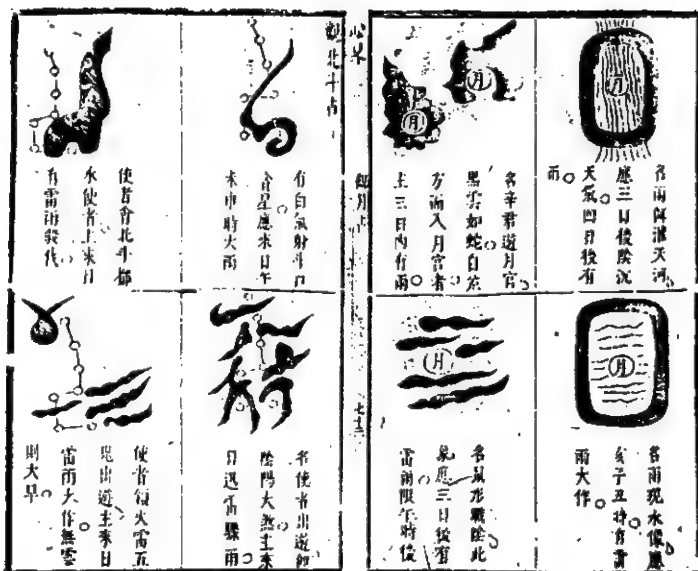 月
名雨師灌天河
應三日後陰沉
天氣四日後有
雨
月
月
名辛君遊月宮
黑雲如蛇白
方面入月宮者
主三日內有雨
月
名雨現水
亥子丑時有雷
雨大作
月
名鼠形戰陰此
象應三日後有
雷雨限午時後
觀月占
七十二
觀北斗占
有白氣射斗口
含星應來日午
未申時大雨
使者會北斗都
水使者主來日
有雷雨發伐
名使者出遊
陰陽大煞主來
日迅雷驟雨
使者領火雷五
鬼出遊主來日
雷雨大作無雲
則大旱